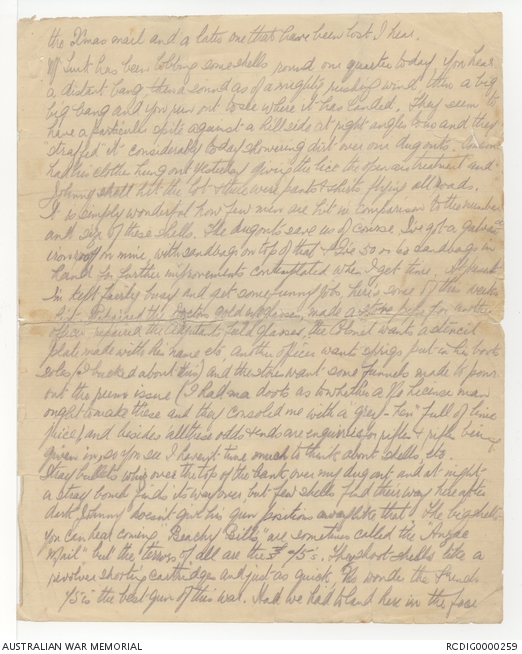 the Xmas mail and a later one that have been lost I hear.
Mr Turk has been lobbing some shells round our quarter today. You hear
a distant bang then a sound as of a mighty rushing wind then a big
big bang and you run out to see where it has landed. They seem to
have a particular spite against a hill side at right angles to us and they
straffed it considerably today showering dirt over our dugouts.
had his clothes hung out yesterday giving the lice the open air treatment and
Johnny shell hit the lot & there were pants & shirts flying all roads.
It is simply wonderful how few men are hit in comparison to the number
and size of these shells. The dugouts save us of course. I've got a galvd
iron roof on mine, with sandbags on top of that & I've 50 or 60 sandbags in
hand for further improvements contemplated when I get time. At present
I'm kept fairly busy and get some funny jobs, here's some of this weeks
list. Repaired the Doctors gold eyeglasses, made a for another
officer, repaired the Adjutant's field glasses, the Colonel wants a stencil
plate made with his name etc, another officer wants sprigs put in his boot
soles (I bucked about this) and the stores want some funnels made to pour
out the rum issue (I had ma doots as to whether a No License man
ought to make these and they consoled me with a grey-hen full of lime
juice) and besides all these odds & ends are enquiries for rifles & rifles being
given in, so you see I haven't time much to think about shells etc.
Stray bullets whiz over the top of the bank over my dugout and at night
a stray bomb finds its way over but few shells find their way here after
dark. Johnny doesn't give his gun positions away like that. The big shells
you can hear coming. Beachy Bill's are sometimes called the "Anzac
Mail" but the terrors of all are the 75's. They shoot shells like a
revolver shooting cartridges and just as quick. No wonder the French
75 is the best gun of this war. Had we had to land here in the face
AUSTRALIAN WAR MEMORIAL
RCDIG0000259